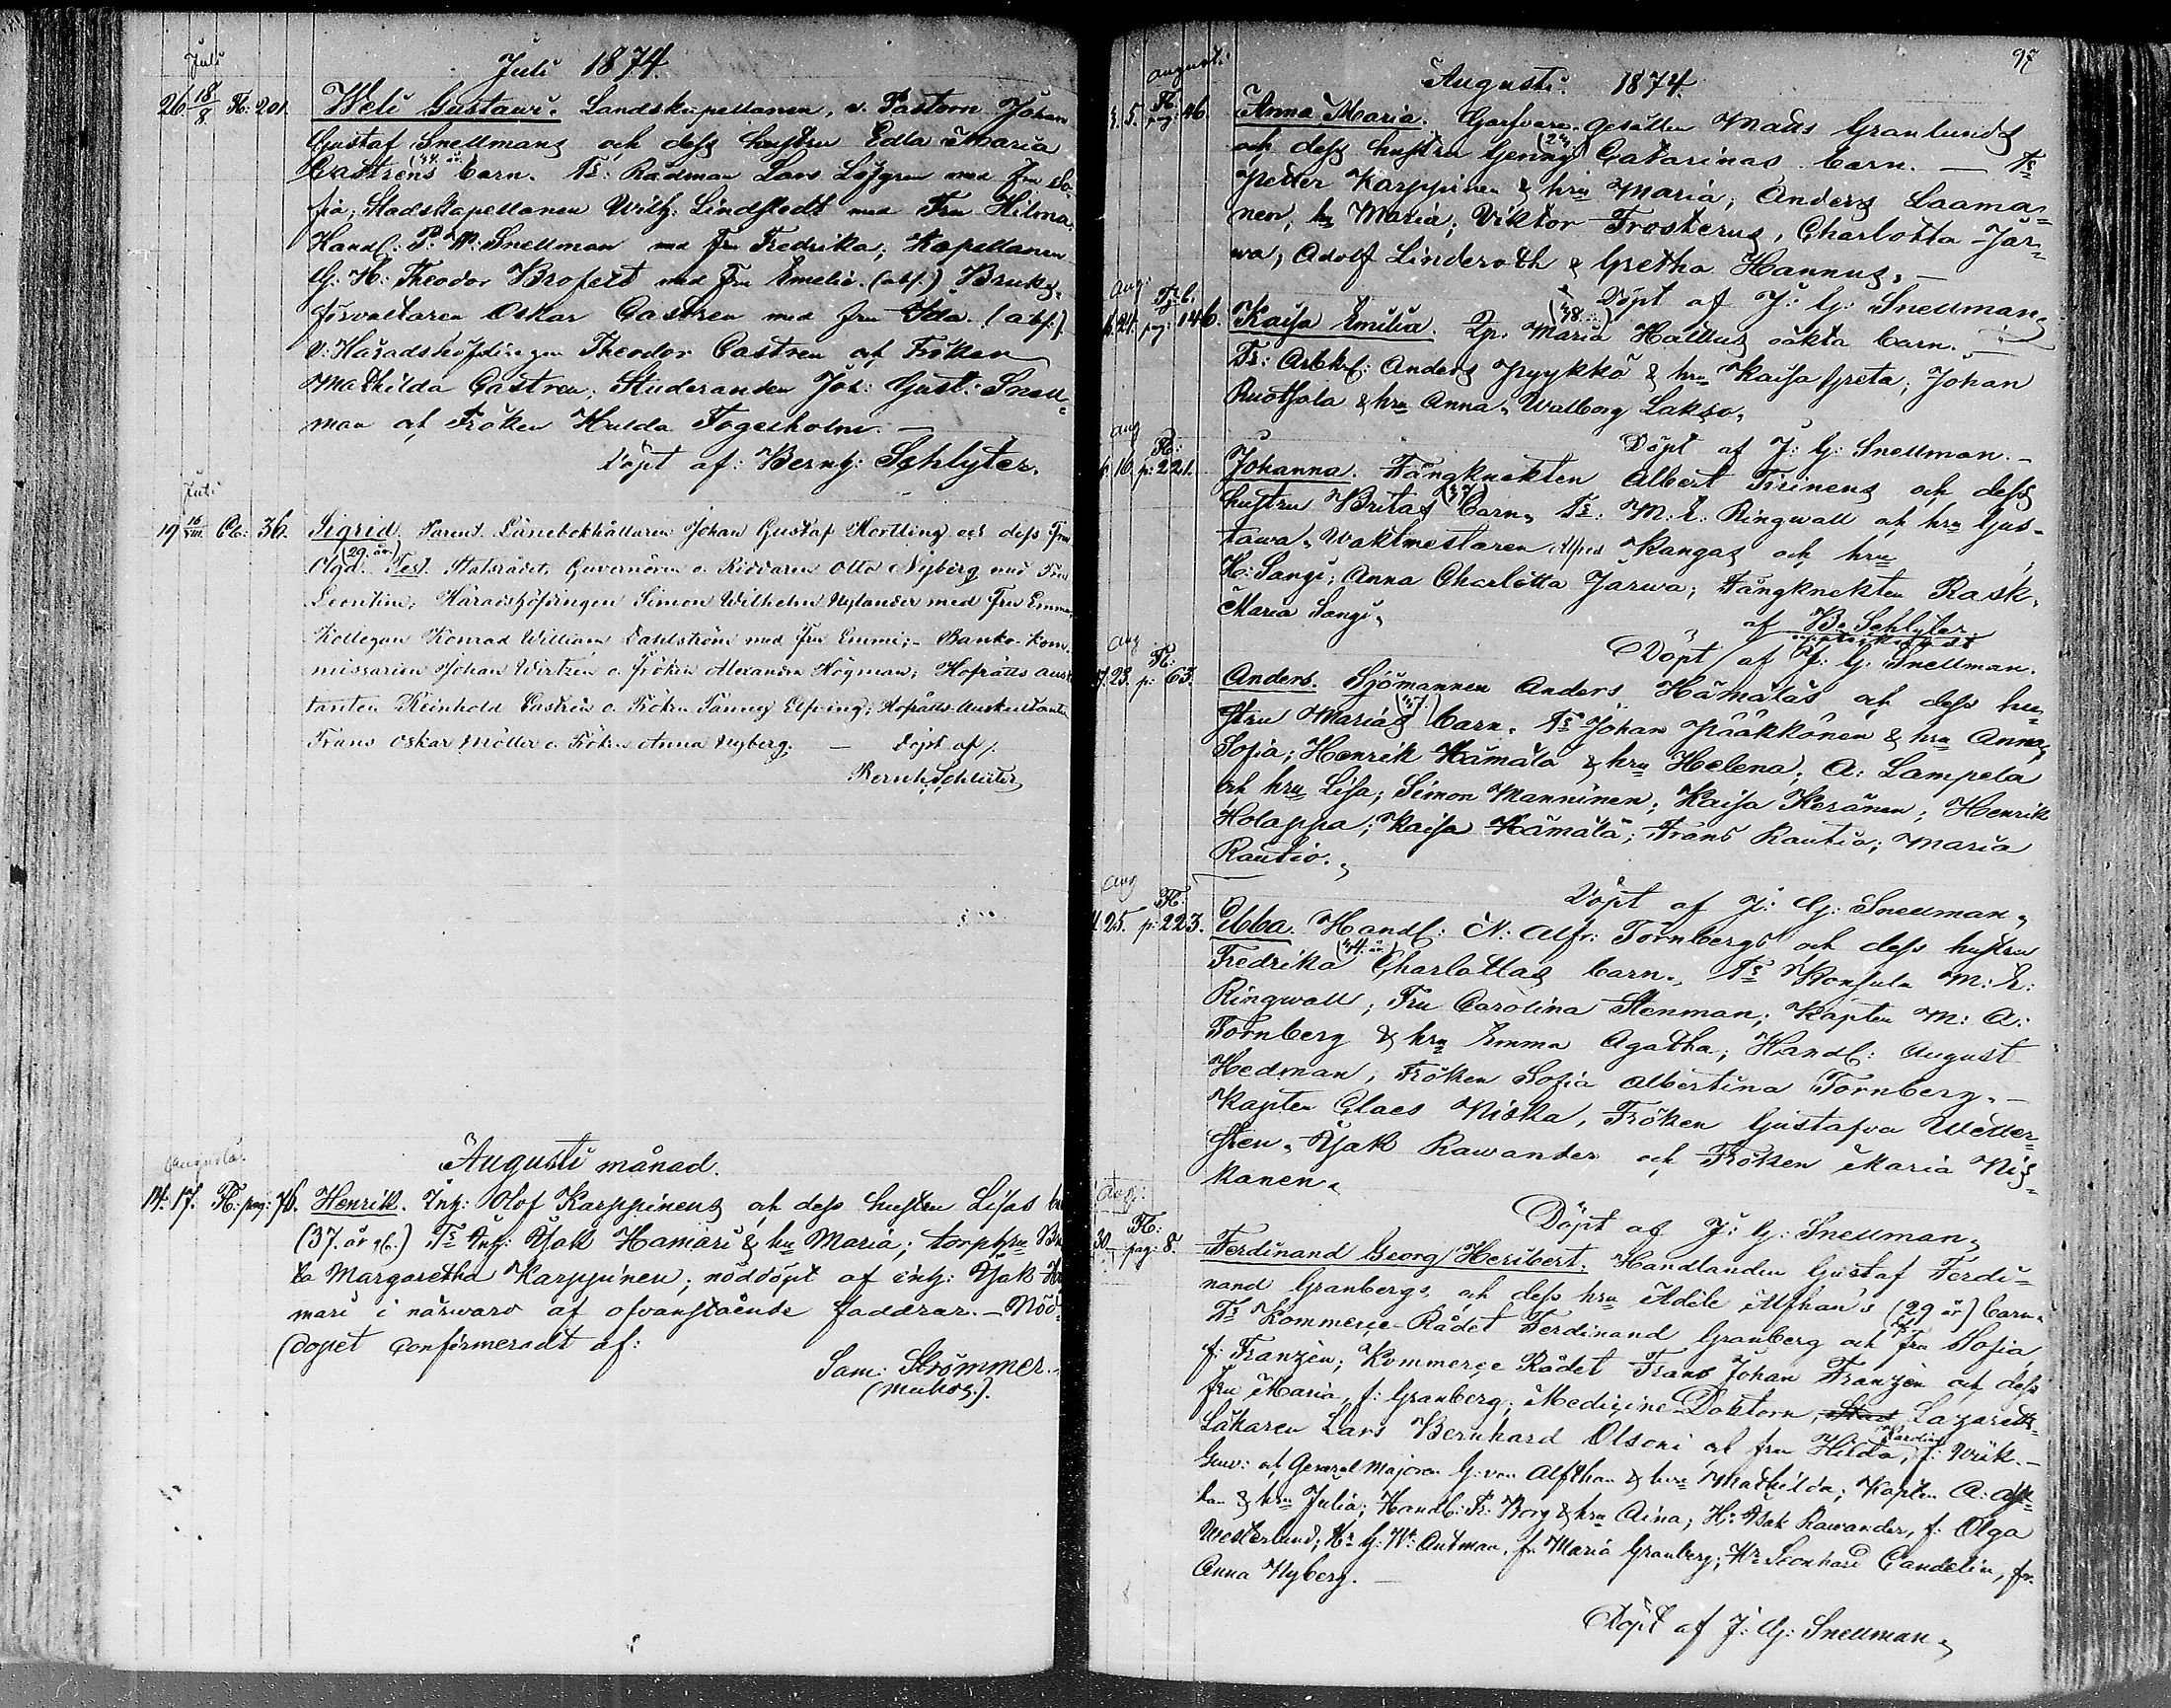 Juli
Juli 1874.
26. 18/8. Fl: 201. Weli Gustawi. Landskapellanen, v. Pastorn Johan
Gustaf Snellmans och dess hustru Edla Maria
Castréns (34. år.) barn. Ts: Rådman Lars Löfgren med fru So-
fia, Stadskapellanen Wilh: Lindstedt med Fru Hilma,
Handl: P: W: Snellman med fru Fredrika; Kapellanen
G: H: Theodor Brofelt med Fru Emelie. (abs.) Bruks-
förvaltaren Oskar Castren med fru Ida. (abs.)
V: Häradshöfdingen Theodor Castren och Fröken
Mathilda Castren, Studeranden Joh: Gust: Snell-
man och Fröken Hulda Fogelholm. —
Döpt af: Bernh: Schlyter.
Juli
19 16/VIII. Cl: 36. Sigrid. Parent. Länebokhållaren Johan Gustaf Hortling och dess Fru
Olga. (29. år) Test. Statsrådet, Guvernören o. Riddaren Otto Nyberg med Fru
Leontine, Häradshöfdingen Simon Wilhelm Nylander med Fru Emma,
Kollegan Konrad William Dahlström med Fru Emmi; - Banko-kom-
missarien Johan Wirtzén o. Fröken Alexandra Högman; Hofrätts aus-
tanten Reinhold Castrén o. Fröken Fanny Elfving; Hofrätts-Auskultanten
Frans Oskar Möller o. Fröken Anna Nyberg. — Döpt af
Bernh. Schlüter
Augusti.
Augusti månad.
14. 17. Fl: pag: 76. Henrik. Inh: Olof Karppinens och dess hustru Lisas
(37. år gl.) Ts Inh: Isak Hamari & hu Maria; torphru
ta Margaretha Karppinen; nöddöpt af inh: Isak
mari i närwaro af ofvanstående faddrar. — Nöd-
dopet confirmeradt af:
Sam: Strömmer.
(Muhos.).
97
August.
Augusti. 1874.
3. 5. Fl: pag: 46. Anna Maria. Garfvare-gesällen Matts Granlunds
och dess hustru Genny (24) Catarinas barn. — Ts
Petter Karppinen & hru Maria; Anders Laama-
nen, hu Maria; Viktor Frosterus, Charlotta Jär-
wa; Adolf Linderoth & Gretha Hannus. —
Döpt af J: G: Snellman
Aug:
6. 21. Fl: 6. pag: 146. Kaisa Emilia. Qp. Maria (38.) Hallus oäkta barn. —
Ts: Arbkl: Anders Pyykkö & hru Kaisa Greta; Johan
Ruotsala & hru Anna, Walborg Lakso.
Döpt af J: G: Snellman. —
Aug
6. 16. Fl: p: 221. Johanna. Fångknekten Albert Tirinens och dess
hustru Britas (37) barn. Ts: M: E: Ringwall och hru Gus-
tawa. Waktmestaren Alfred Kangas och hru
H: Sangi; Anna Charlotta Järwa; Fångknekten Rask.
Maria Sangi.
af B: Schlyter
Döpt af J: G: Snellman.
Aug
17. 23. Fl: p: 63. Anders. Sjömannen Anders Hämäläs och dess hu-
stru Marias (37.) barn. Ts Johan Pääkkönen & hru Anna
Sofia; Henrik Hämälä & hru Helena; A: Lampela
och hru Lisa; Simon Manninen; Kaisa Keränen; Henrik
Holappa; Kaisa Hämälä; Frans Rautio; Maria
Rautio.
Döpt af J: G: Snellman.
Aug
25. Fl: p: 223. Ebba. Handl: N: Alfr: Tornbergs och dess hustru
Fredrika (34. år) Charlottas barn. Ts Konsuln M: E:
Ringwall; Fru Carolina Stenman; Kapten M: A:
Tornberg & hru Emma Agatha; Handl: August
Hedman, Fröken Sofia Albertina Tornberg. —
Kapten Claes Niska, Fröken Gustafva Wetter-
sten. Isak Rawander och Fröken Maria Nis-
kanen.
Döpt af J: G: Snellman.
Aug:
30. Fl: pag: 8. Ferdinand Georg Heribert. Handlanden Gustaf Ferdi-
nand Granbergs och dess hru Adéle Alfthan's (29 år) barn.
Ts Kommerce-Rådet Ferdinand Granberg och Fru Sofia
f. Franzén; Kommerce Rådet Frans Johan Franzén och dess
fru Maria, f: Granberg; Medicine Doktorn, Lazaretts-
Läkaren Lars Bernhard Olsoni och fru Hilda Karolina, f: Wiik. —
Guv: och General Majoren G: von Alfthan & hru Mathilda; Kapten A: Alft-
han & hru Julia; Handl: Fr: Borg & hru Aina; Hr Isak Rawander, f: Olga
Westerlund; Hr G: W: Autman, fr Maria Granberg; Hr Leonhard Candelin, fr.
Anna Nyberg. —
Döpt af J: G: Snellman.